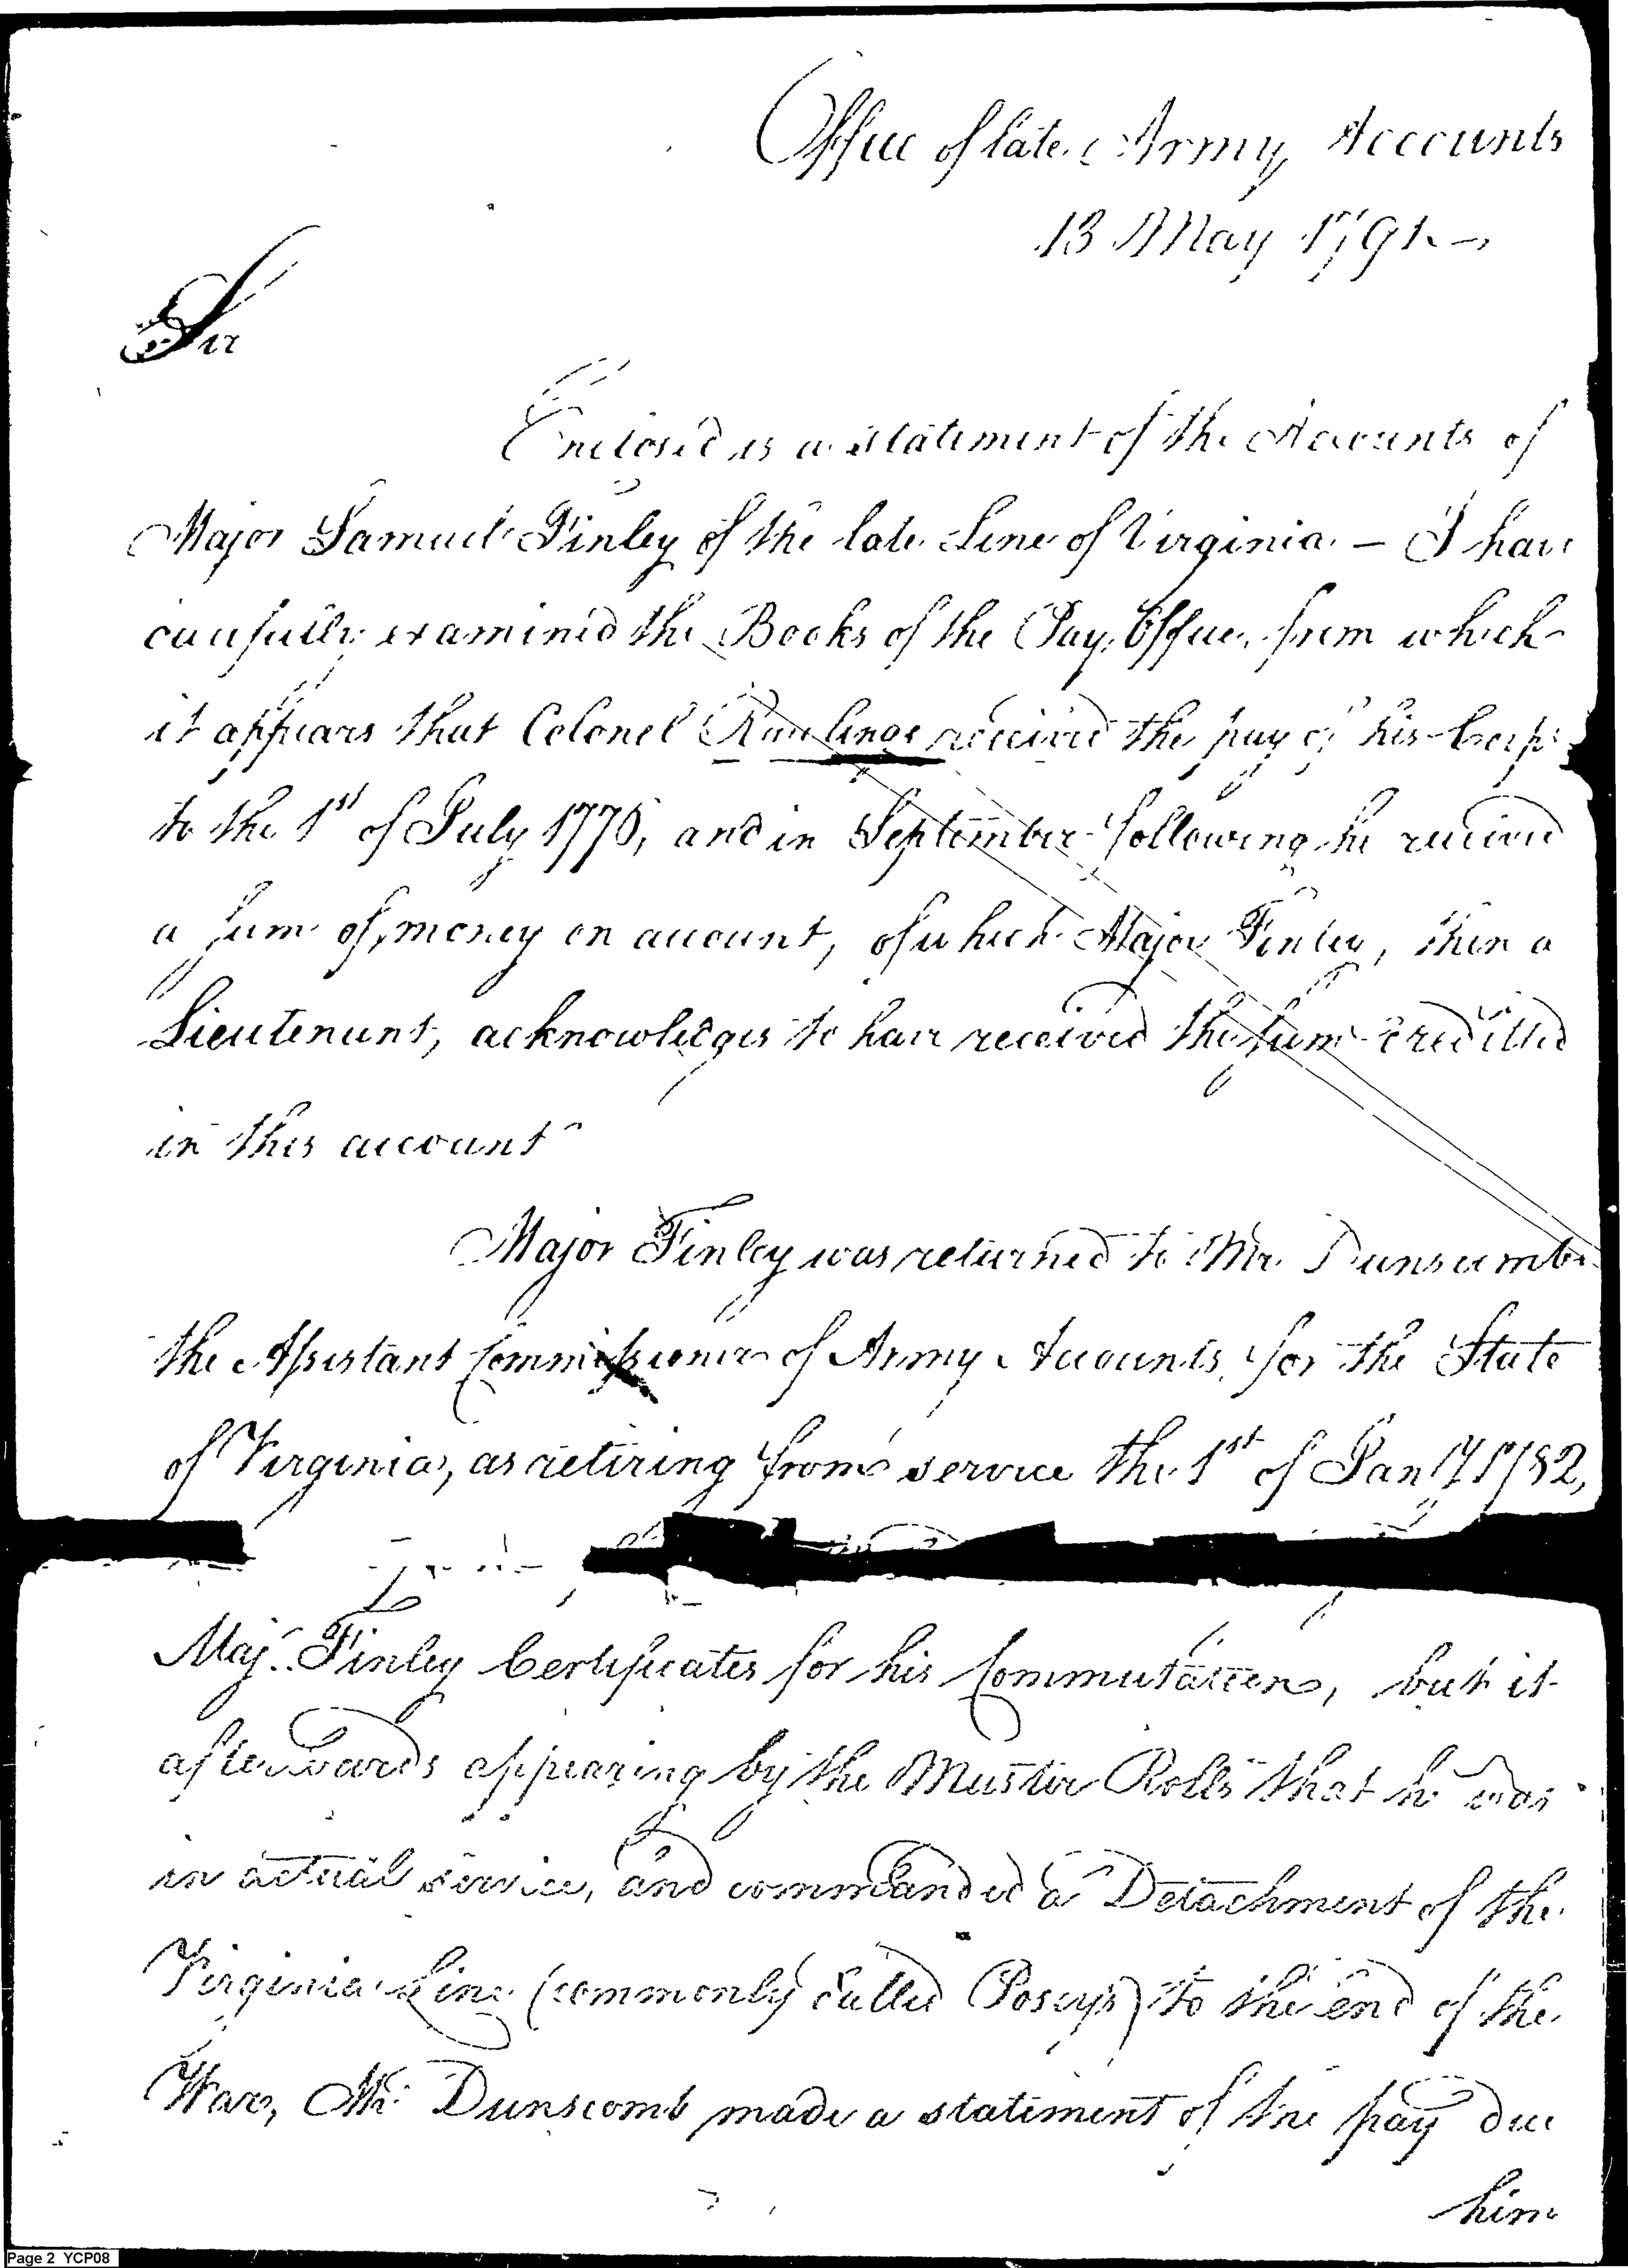 Office of late Army Accounts
13 May 1791.
Sir
Enclosed is a statement of the Accounts of
Major Samuel Finley of the late Line of Virginia — I have
carefully examined the Books of the Pay Office, from which
it appears that Colonel Rawlings received the pay of his Corps
to the 1st of July 1776, and in September following he received
a sum of money on account, of which Major Finley, then a
Lieutenant, acknowledges to have received the sum credited
in this account
Major Finley was returned to Mr. Dunscomb
the Assistant Commissioner of Army Accounts, for the State
of Virginia, as retiring from service the 1st of Jany 1782,
Majr. Finley Certificates for his Commutation, but it
afterwards appearing by the Muster Rolls that he was
in actual service, and commanded a Detachment of the
Virginia Line (commonly called Posey's) to the end of the
War, Mr. Dunscomb made a statement of the pay due
him
Page 2 YCP08